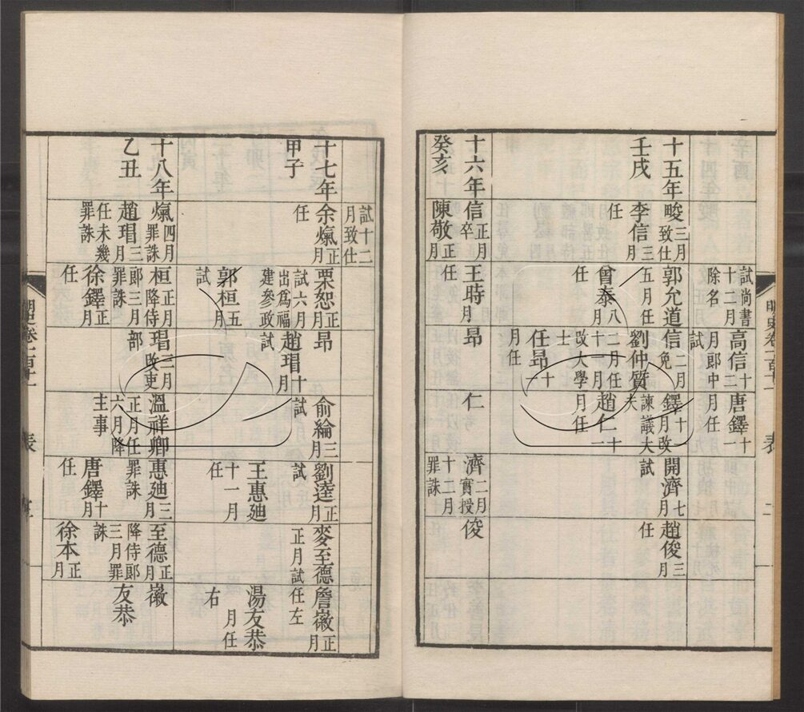 試尚書十二月除名
高信十二月郎中試
唐鐸十一月任
十五年
壬戌
畯三月致仕
李信三月任
郭允道五月任
曾泰八月任
信二月免
劉仲質二月任十一月改大學士
任昂十一月任
鐸十月改諫議大夫
趙仁十一月任
開濟七月試
趙俊三月任
十六年
癸亥
信正月卒
陳敬正月任
王時月任
昂
仁
濟二月實授十二月罪誅
俊
試十二月致仕
十七年
甲子
余熂正月任
栗恕正月試六月出爲福建參政
郭桓五月試
昂
趙瑁十月試
俞綸三月試
劉逵正月試
王惠廸十一月
麥至德正月試
詹徽正月任左
湯友恭月任右
十八年
乙丑
熂四月罪誅
趙瑁三月任未幾罪誅
桓正月降侍郎三月罪誅
徐鐸正月任
瑁三月改吏部
溫祥卿正月任六月降主事
惠廸三月罪誅
唐鐸十月任
至德正月降侍郎三月罪誅
徐本正月
徽
友恭
明史卷一百十一
表